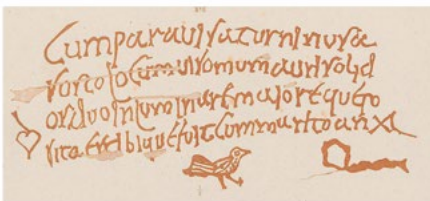 Cumparaui saturninus a
susto locum uisomum auri solid
os duo in luminare maiore que po
sita est ibi que fuit cum marito an xl